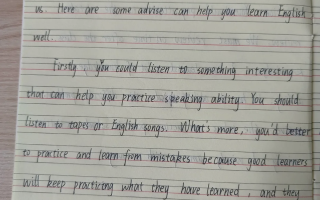 us. Here are some advise can help you learn English
well.
Firstly, you could listen to something interesting
that can help you practice speaking ability. You should
listen to tapes or English songs. What's more, you'd better
to practice and learn from mistakes because good learners
will keep practicing what they have learned, and they